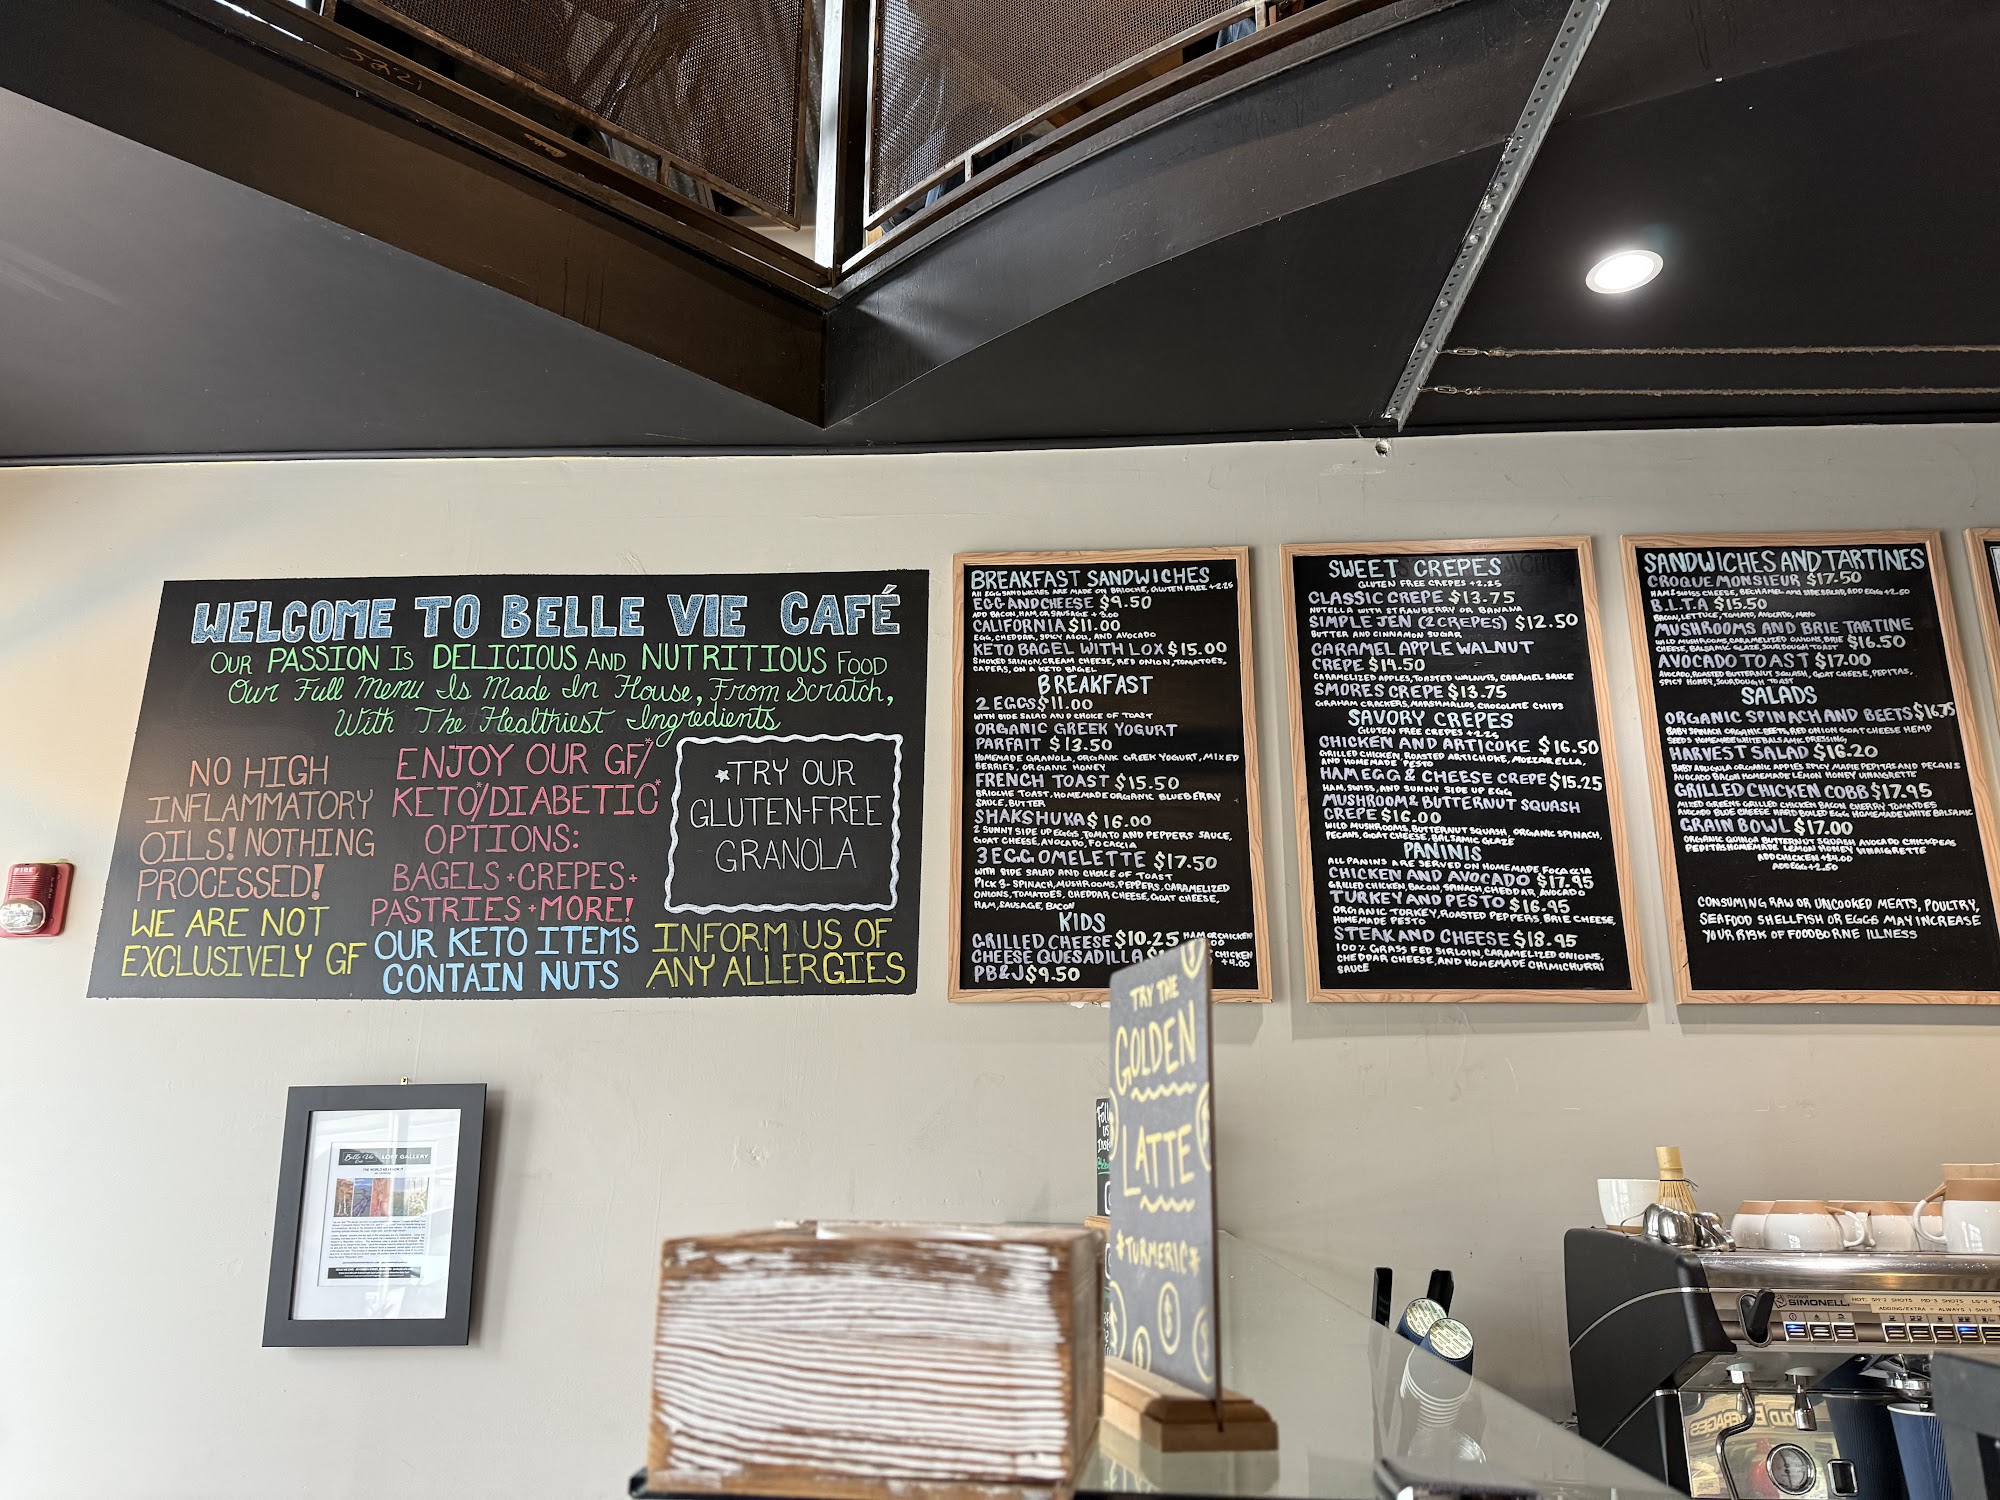 WELCOME TO BELLE VIE CAFÉ
OUR PASSION IS DELICIOUS AND NUTRITIOUS FOOD
Our Full Menu Is Made In House, From Scratch,
With The Healthiest Ingredients
NO HIGH
INFLAMMATORY
OILS! NOTHING
PROCESSED!
WE ARE NOT
EXCLUSIVELY GF
ENJOY OUR GF*/
KETO*/DIABETIC*
OPTIONS:
BAGELS + CREPES +
PASTRIES + MORE!
OUR KETO ITEMS
CONTAIN NUTS
*TRY OUR
GLUTEN-FREE
GRANOLA
INFORM US OF
ANY ALLERGIES
BREAKFAST SANDWICHES
All EGG SANDWICHES ARE MADE ON BRIOCHE, GLUTEN FREE +2.25
EGG AND CHEESE $9.50
ADD BACON, HAM, OR SAUSAGE +3.00
CALIFORNIA $11.00
EGG, CHEDDAR, SPICY AIOLI, AND AVOCADO
KETO BAGEL WITH LOX $15.00
SMOKED SALMON, CREAM CHEESE, RED ONION, TOMATOES,
CAPERS, ON A KETO BAGEL
BREAKFAST
2 EGGS $11.00
WITH SIDE SALAD AND CHOICE OF TOAST
ORGANIC GREEK YOGURT
PARFAIT $13.50
HOMEMADE GRANOLA, ORGANIC GREEK YOGURT, MIXED
BERRIES, ORGANIC HONEY
FRENCH TOAST $15.50
BRIOCHE TOAST, HOMEMADE ORGANIC BLUEBERRY
SAUCE, BUTTER
SHAKSHUKA $16.00
2 SUNNY SIDE UP EGGS, TOMATO AND PEPPERS SAUCE,
GOAT CHEESE, AVOCADO, FOCACCIA
3 EGG OMELETTE $17.50
WITH SIDE SALAD AND CHOICE OF TOAST
PICK 3- SPINACH, MUSHROOMS, PEPPERS, CARAMELIZED
ONIONS, TOMATOES, CHEDDAR CHEESE, GOAT CHEESE,
HAM, SAUSAGE, BACON
KIDS
GRILLED CHEESE $10.25 HAM OR CHICKEN
CHEESE QUESADILLA CHICKEN
+4.00
PB&J $9.50
SWEET CREPES
GLUTEN FREE CREPES +2.25
CLASSIC CREPE $13.75
NUTELLA WITH STRAWBERRY OR BANANA
SIMPLE JEN (2 CREPES) $12.50
BUTTER AND CINNAMON SUGAR
CARAMEL APPLE WALNUT
CREPE $14.50
CARAMELIZED APPLES, TOASTED WALNUTS, CARAMEL SAUCE
SMORES CREPE $13.75
GRAHAM CRACKERS, MARSHMALLOS, CHOCOLATE CHIPS
SAVORY CREPES
GLUTEN FREE CREPES +2.25
CHICKEN AND ARTICOKE $16.50
GRILLED CHICKEN, ROASTED ARTICHOKE, MOZZARELLA,
AND HOMEMADE PESTO
HAM EGG & CHEESE CREPE $15.25
HAM, SWISS, AND SUNNY SIDE UP EGG
MUSHROOM & BUTTERNUT SQUASH
CREPE $16.00
WILD MUSHROOMS, BUTTERNUT SQUASH, ORGANIC SPINACH,
PECANS, GOAT CHEESE, BALSAMIC GLAZE
PANINIS
ALL PANINIS ARE SERVED ON HOMEMADE FOCACCIA
CHICKEN AND AVOCADO $17.95
GRILLED CHICKEN, BACON, SPINACH, CHEDDAR, AVOCADO
TURKEY AND PESTO $16.95
ORGANIC TURKEY, ROASTED PEPPERS, BRIE CHEESE,
HOMEMADE PESTO
STEAK AND CHEESE $18.95
100% GRASS FED SIRLOIN, CARAMELIZED ONIONS,
CHEDDAR CHEESE, AND HOMEMADE CHIMICHURRI
SAUCE
SANDWICHES AND TARTINES
CROQUE MONSIEUR $17.50
HAM & SWISS CHEESE, BECHAMEL AND SIDE SALAD, ADD EGG +2.50
B.L.T.A $15.50
BACON, LETTUCE, TOMATO, AVOCADO, MAYO
MUSHROOMS AND BRIE TARTINE
WILD MUSHROOMS, CARAMELIZED ONIONS, BRIE $16.50
CHEESE, BALSAMIC GLAZE, SOURDOUGH TOAST
AVOCADO TOAST $17.00
AVOCADO, ROASTED BUTTERNUT SQUASH, GOAT CHEESE, PEPITAS,
SPICY HONEY, SOURDOUGH TOAST
SALADS
ORGANIC SPINACH AND BEETS $16.75
BABY SPINACH ORGANIC BEETS, RED ONION GOAT CHEESE HEMP
SEEDS HOMEMADE WHITE BALSAMIC DRESSING
HARVEST SALAD $16.20
BABY ARUGULA ORGANIC APPLES SPICY MAPLE PEPITAS AND PECANS
AVOCADO BACON HOMEMADE LEMON HONEY VINAIGRETTE
GRILLED CHICKEN COBB $17.95
MIXED GREENS GRILLED CHICKEN BACON CHERRY TOMATOES
AVOCADO BLUE CHEESE HARD BOILED EGG HOMEMADE WHITE BALSAMIC
GRAIN BOWL $17.00
ORGANIC QUINOA BUTTERNUT SQUASH AVOCADO CHICKPEAS
PEPITAS HOMEMADE LEMON HONEY VINAIGRETTE
ADD CHICKEN +$4.00
ADD EGG +2.50
CONSUMING RAW OR UNCOOKED MEATS, POULTRY,
SEAFOOD SHELLFISH OR EGGS MAY INCREASE
YOUR RISK OF FOODBORNE ILLNESS
TRY THE
GOLDEN
LATTE
*TURMERIC*
FIRE
Belle Vie LOFT GALLERY
SIMONELLI
HOT: SM-2 SHOTS MD-3 SHOTS LG-4 SH
ADDING/EXTRA = ALWAYS 1 SHOT